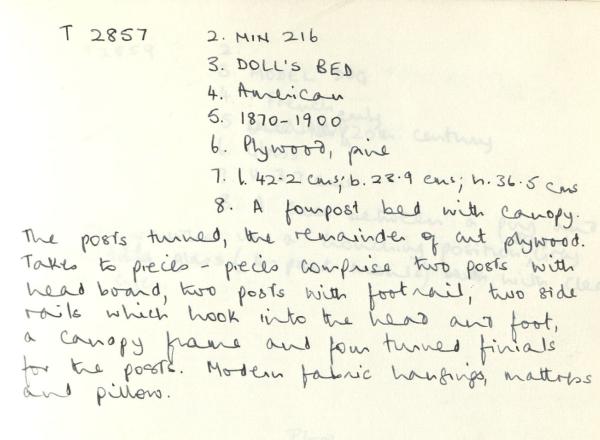 T 2857 2. MIN 216
3. DOLL'S BED
4. American
5. 1870-1900
6. Plywood, pine
7. l. 42.2 cms; b. 23.9 cms; h. 36.5 cms
8. A fourpost bed with canopy.
The posts turned, the remainder of cut plywood.
Takes to pieces - pieces comprise two posts with
head board, two posts with footrail, two side
rails which hook into the head and foot,
a canopy frame and four turned finials
for the posts. Modern fabric hangings, mattress
and pillow.